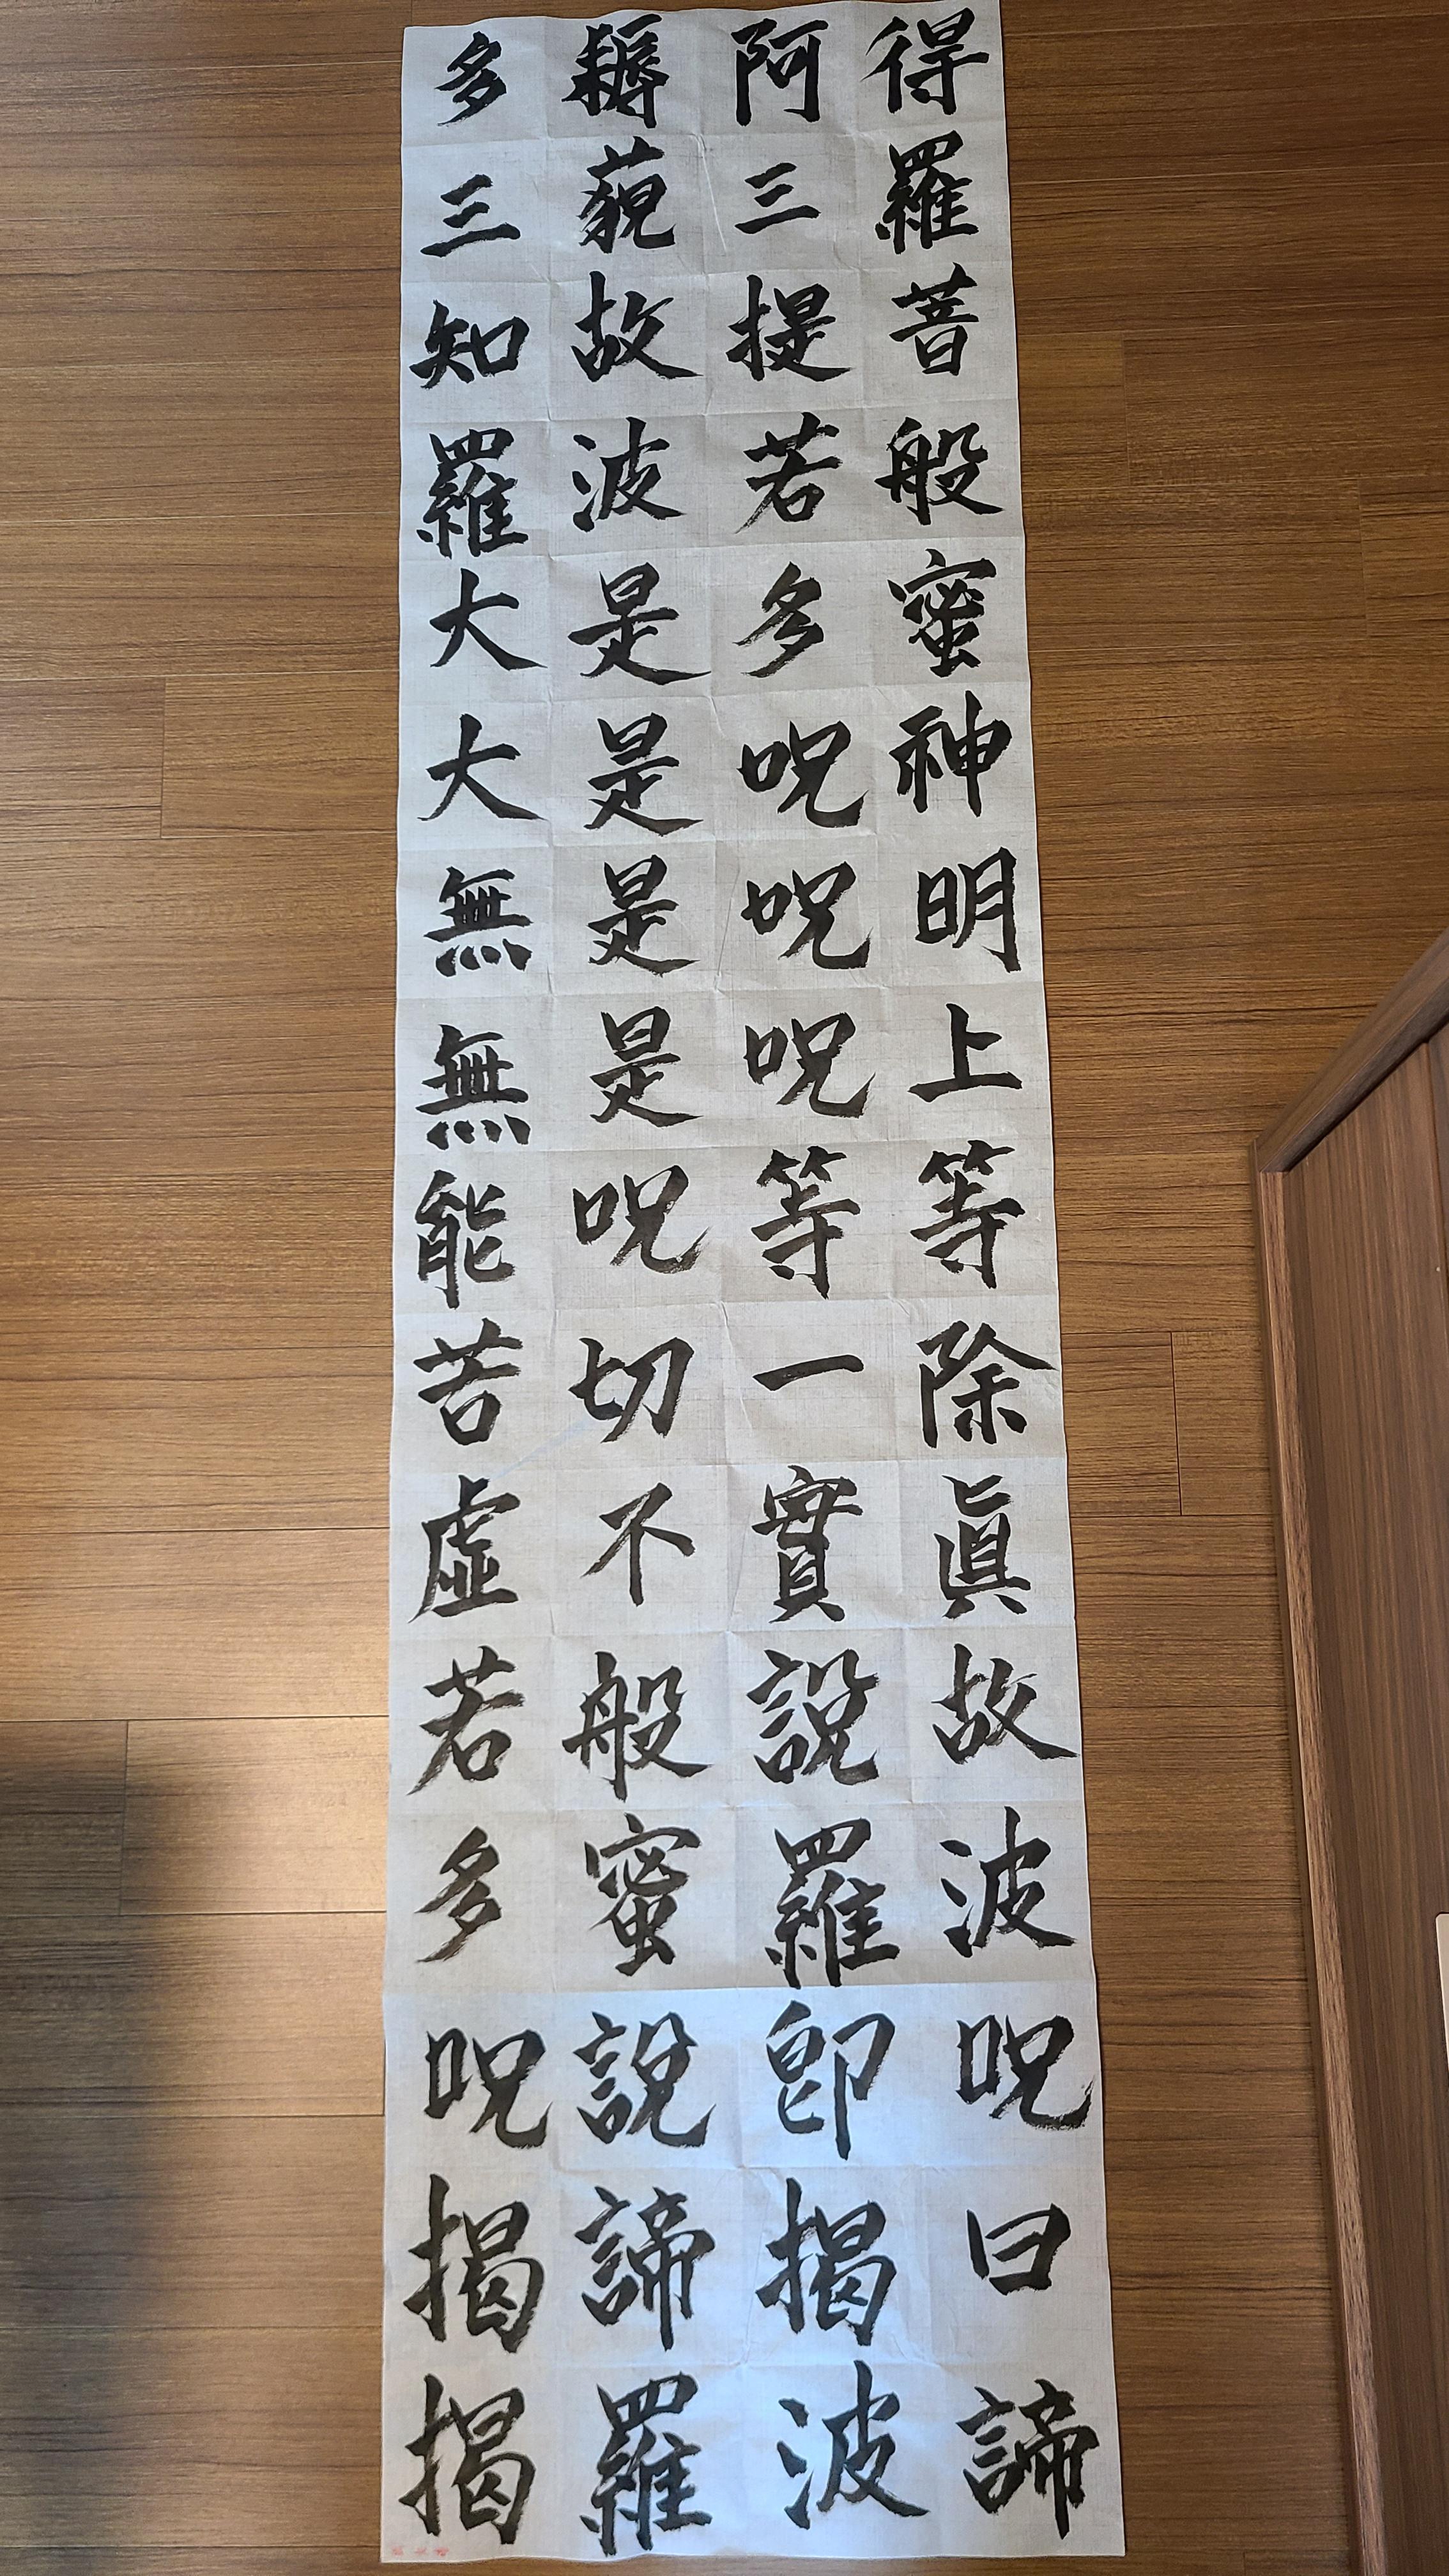 得阿耨多
羅三藐三
菩提故知
般若波羅
蜜多是大
神呪是大
明呪是無
上呪是無
等等呪能
除一切苦
眞實不虛
故說般若
波羅蜜多
呪卽說呪
曰揭諦揭
諦波羅揭